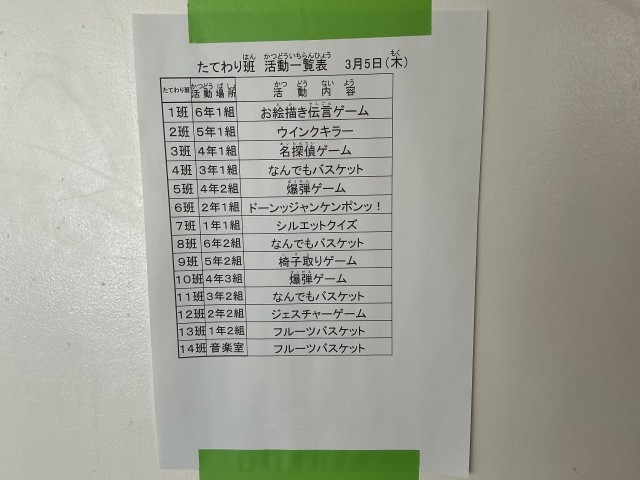 たてわり班 活動一覧表 3月5日(木)
たてわり班 活動場所 活動内容
1班 6年1組 お絵描き伝言ゲーム
2班 5年1組 ウインクキラー
3班 4年1組 名探偵ゲーム
4班 3年1組 なんでもバスケット
5班 4年2組 爆弾ゲーム
6班 2年1組 ドーンッジャンケンポンッ!
7班 1年1組 シルエットクイズ
8班 6年2組 なんでもバスケット
9班 5年2組 椅子取りゲーム
10班 4年3組 爆弾ゲーム
11班 3年2組 なんでもバスケット
12班 2年2組 ジェスチャーゲーム
13班 1年2組 フルーツバスケット
14班 音楽室 フルーツバスケット